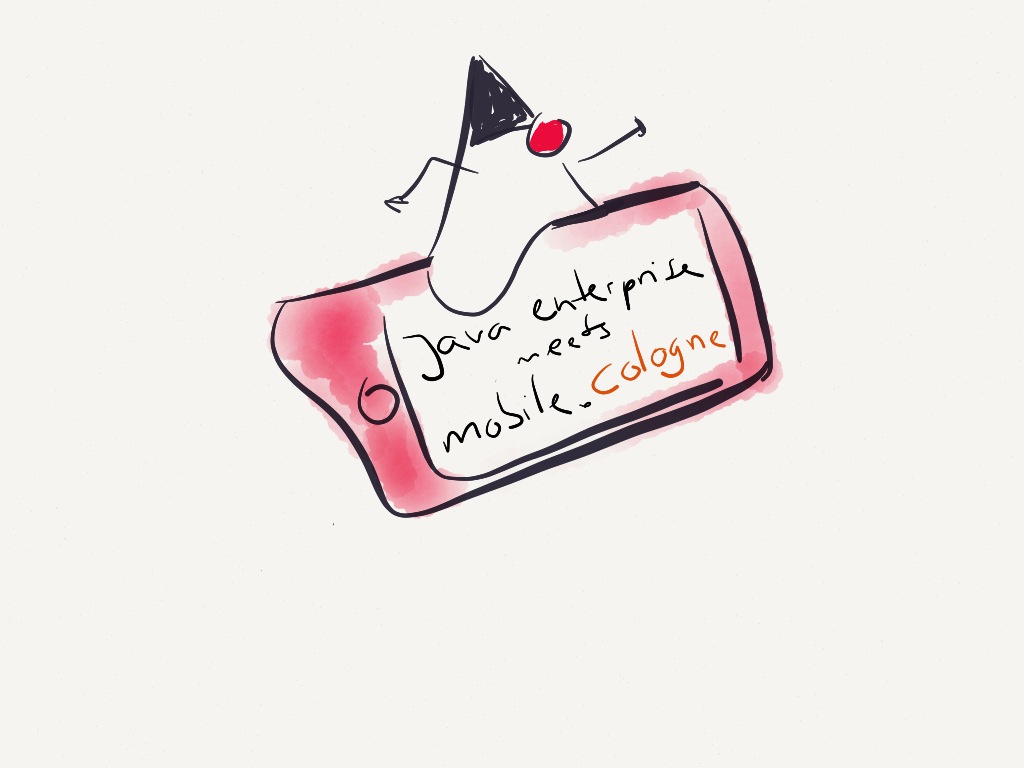 Java enterprise
meets
mobile.cologne